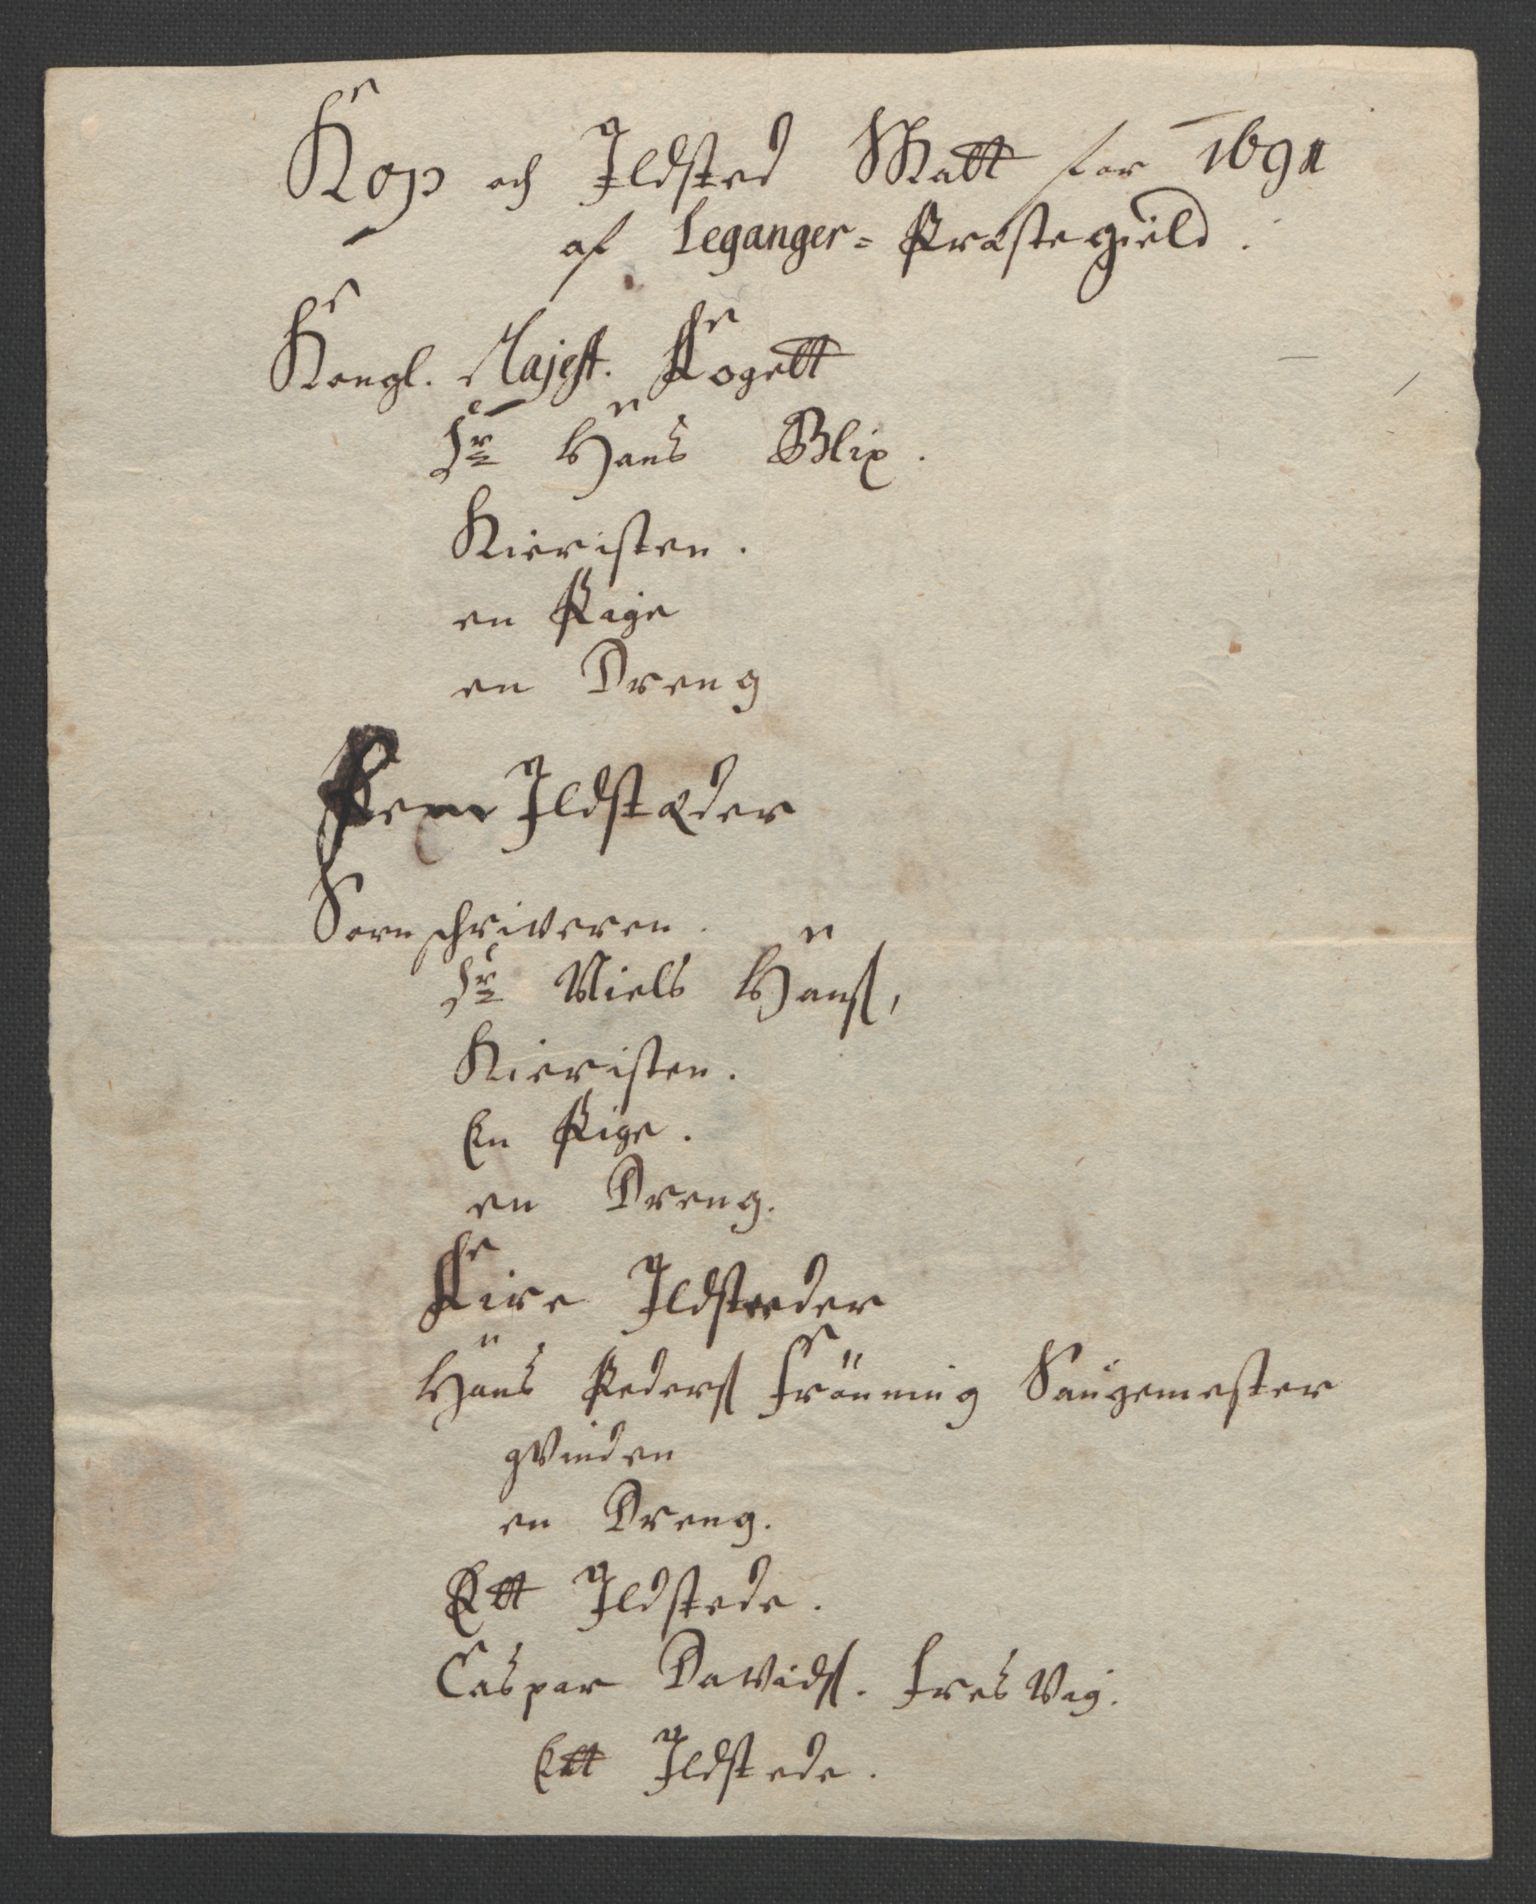 Kop och Ildsted Skatt for 1691
af Leganger- Præstegield.
Kongl. Majest. Fogett
Sr Hans Blix.
Kieristen.
en Pige
en Dreng
Fem Ildstæder
Sornschriveren.
Sr Niels Hanß,
Kieristen.
En Pige.
en Dreng.
Fire Ildstæder
Hans Pederß Frönning Saugemester
qvinden
en Dreng.
Ett Ildstede.
Caspar Davidß. Fresvig.
Ett Ildstede.